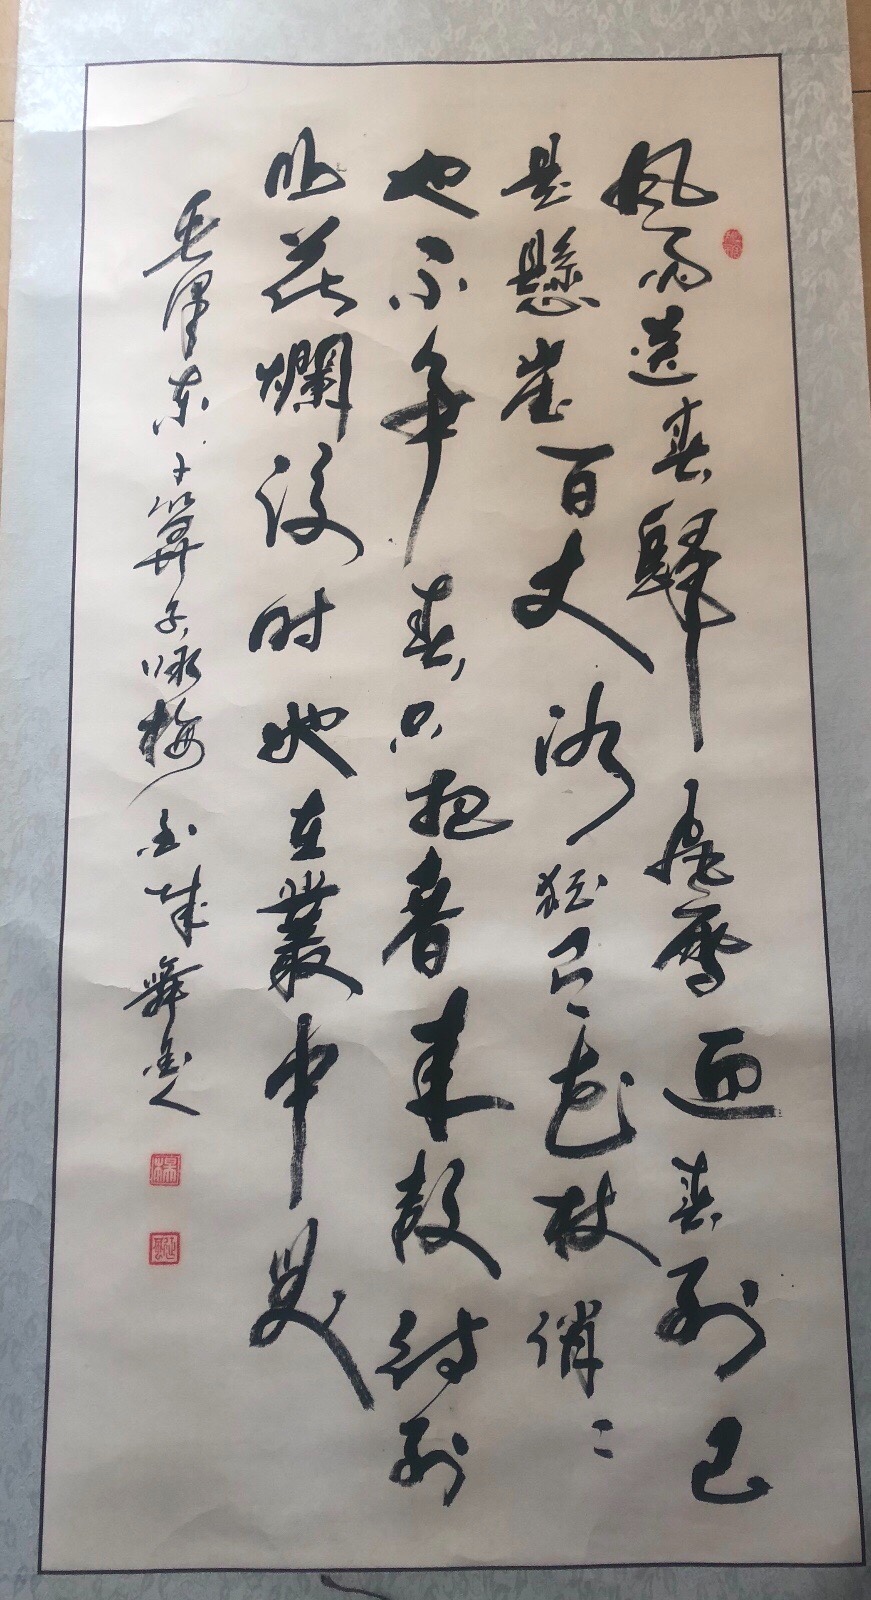 風雨送春歸飛雪迎春到已
是懸崖百丈冰犹有花枝俏〻
也不争春只把春来報待到
山花爛漫时她在叢中笑
毛澤东卜算子咏梅